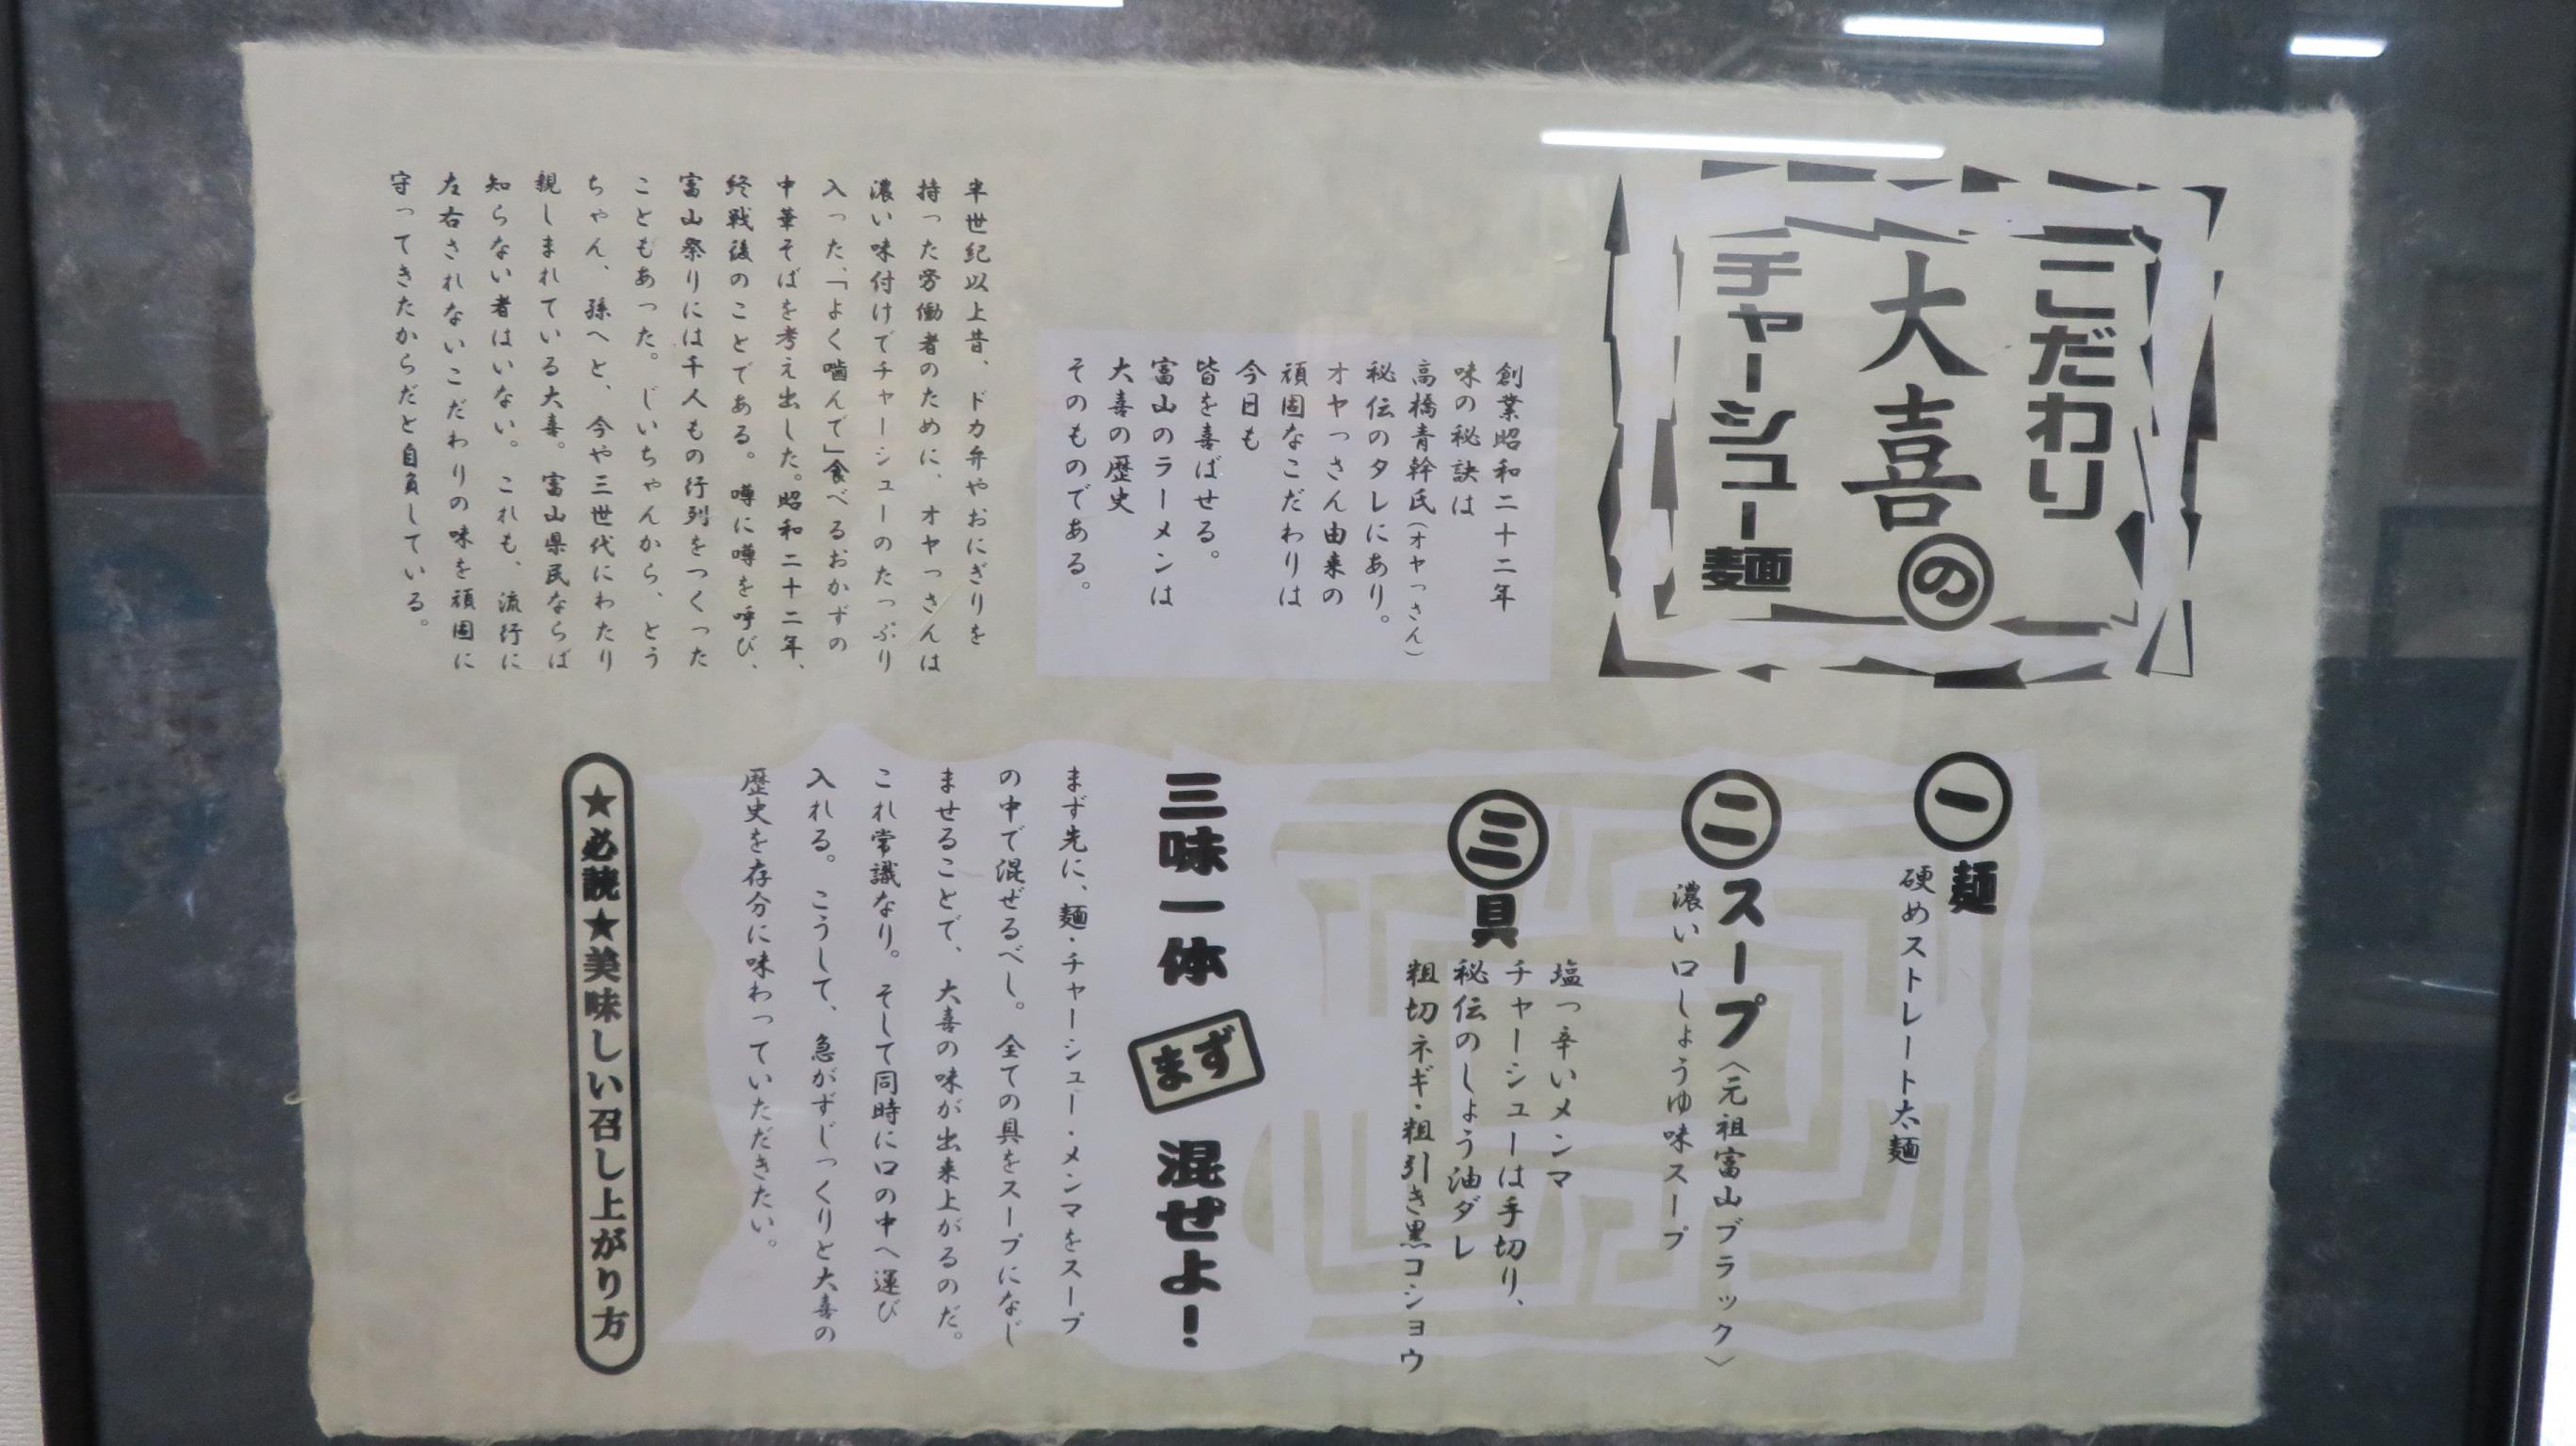 こだわり
大喜の
チャーシュー麺
創業昭和二十二年
味の秘訣は
高橋青幹氏(オヤっさん)
秘伝のタレにあり。
オヤっさん由来の
頑固なこだわりは
今日も
皆を喜ばせる。
富山のラーメンは
大喜の歴史
そのものである。
半世紀以上昔、ドカ弁やおにぎりを
持った労働者のために、オヤっさんは
濃い味付けでチャーシューのたっぷり
入った、「よく噛んで」食べるおかずの
中華そばを考え出した。昭和二十二年、
終戦後のことである。噂に噂を呼び、
富山祭りには千人もの行列をつくった
こともあった。じいちゃんから、とう
ちゃん、孫へと、今や三世代にわたり
親しまれている大喜。富山県民ならば
知らない者はいない。これも、流行に
左右されないこだわりの味を頑固に
守ってきたからだと自負している。
一麺
硬めストレート太麺
二スープ〈元祖富山ブラック〉
濃い口しょうゆ味スープ
三具
塩っ辛いメンマ
チャーシューは手切り、
秘伝のしょう油ダレ
粗切ネギ・粗引き黒コショウ
三味一体 まず 混ぜよ!
まず先に、麺・チャーシュー・メンマをスープ
の中で混ぜるべし。全ての具をスープになじ
ませることで、大喜の味が出来上がるのだ。
これ常識なり。そして同時に口の中へ運び
入れる。こうして、急がずじっくりと大喜の
歴史を存分に味わっていただきたい。
★必読★美味しい召し上がり方